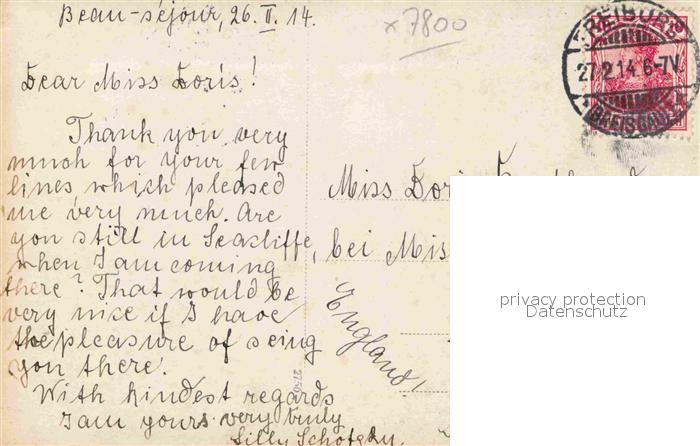 Beau-séjour, 26. II. 14.
x 7800
FREIBURG
27.2.14.6-7V.
(BREISGAU)
Dear Miss Doris!
Thank you very
much for your few
lines which pleased
me very much. Are
you still in Seacliffe,
when I am coming
there? That would be
very nice if I have
the pleasure of seing
you there.
With kindest regards
I am yours very truly
Lilly
Miss Doris
bei Miss
England!
2750
privacy protection
Datenschutz